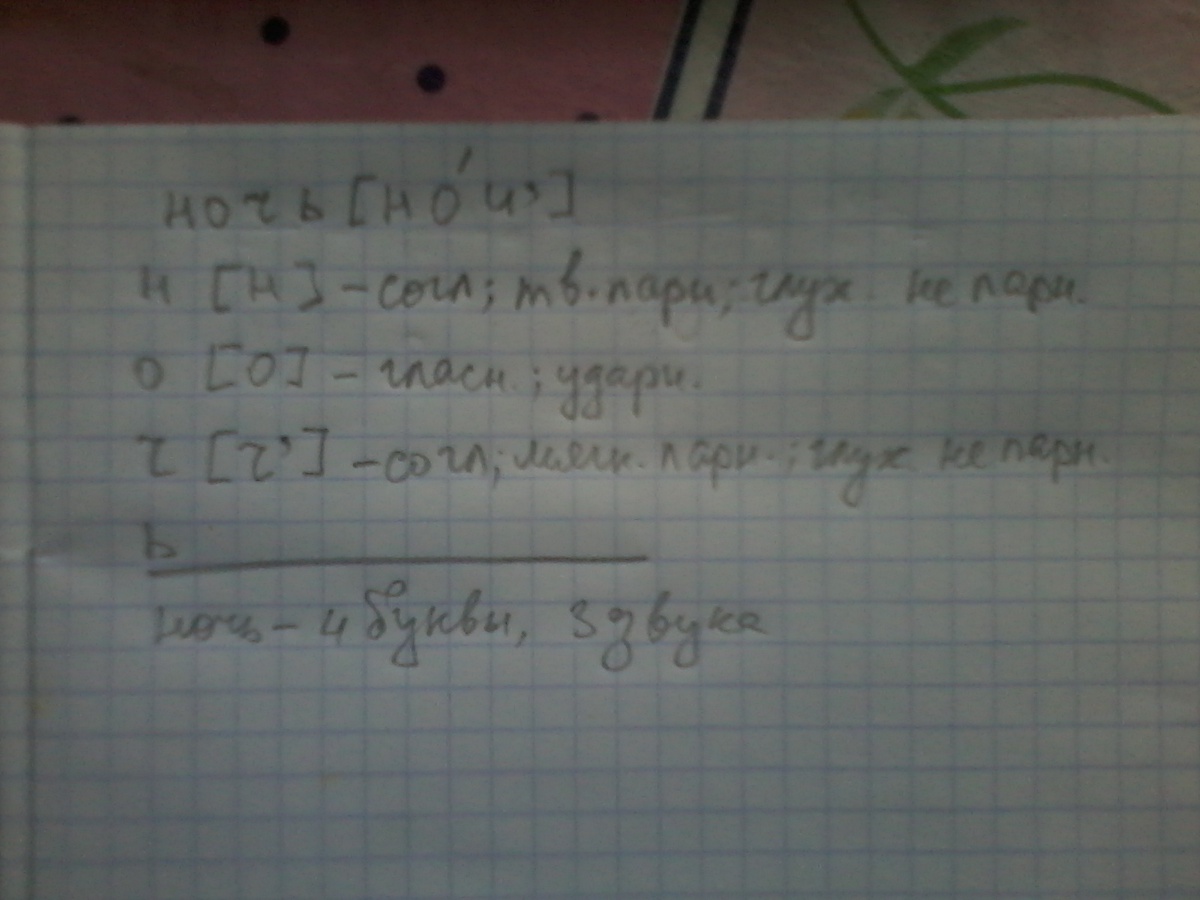 ночь [но́ч']
н [н] – согл; тв. парн; глух не парн.
о [о] – гласн.; ударн.
ч [ч'] – согл; мягк. парн.; глух не парн.
ь
ночь – 4 буквы, 3 звука